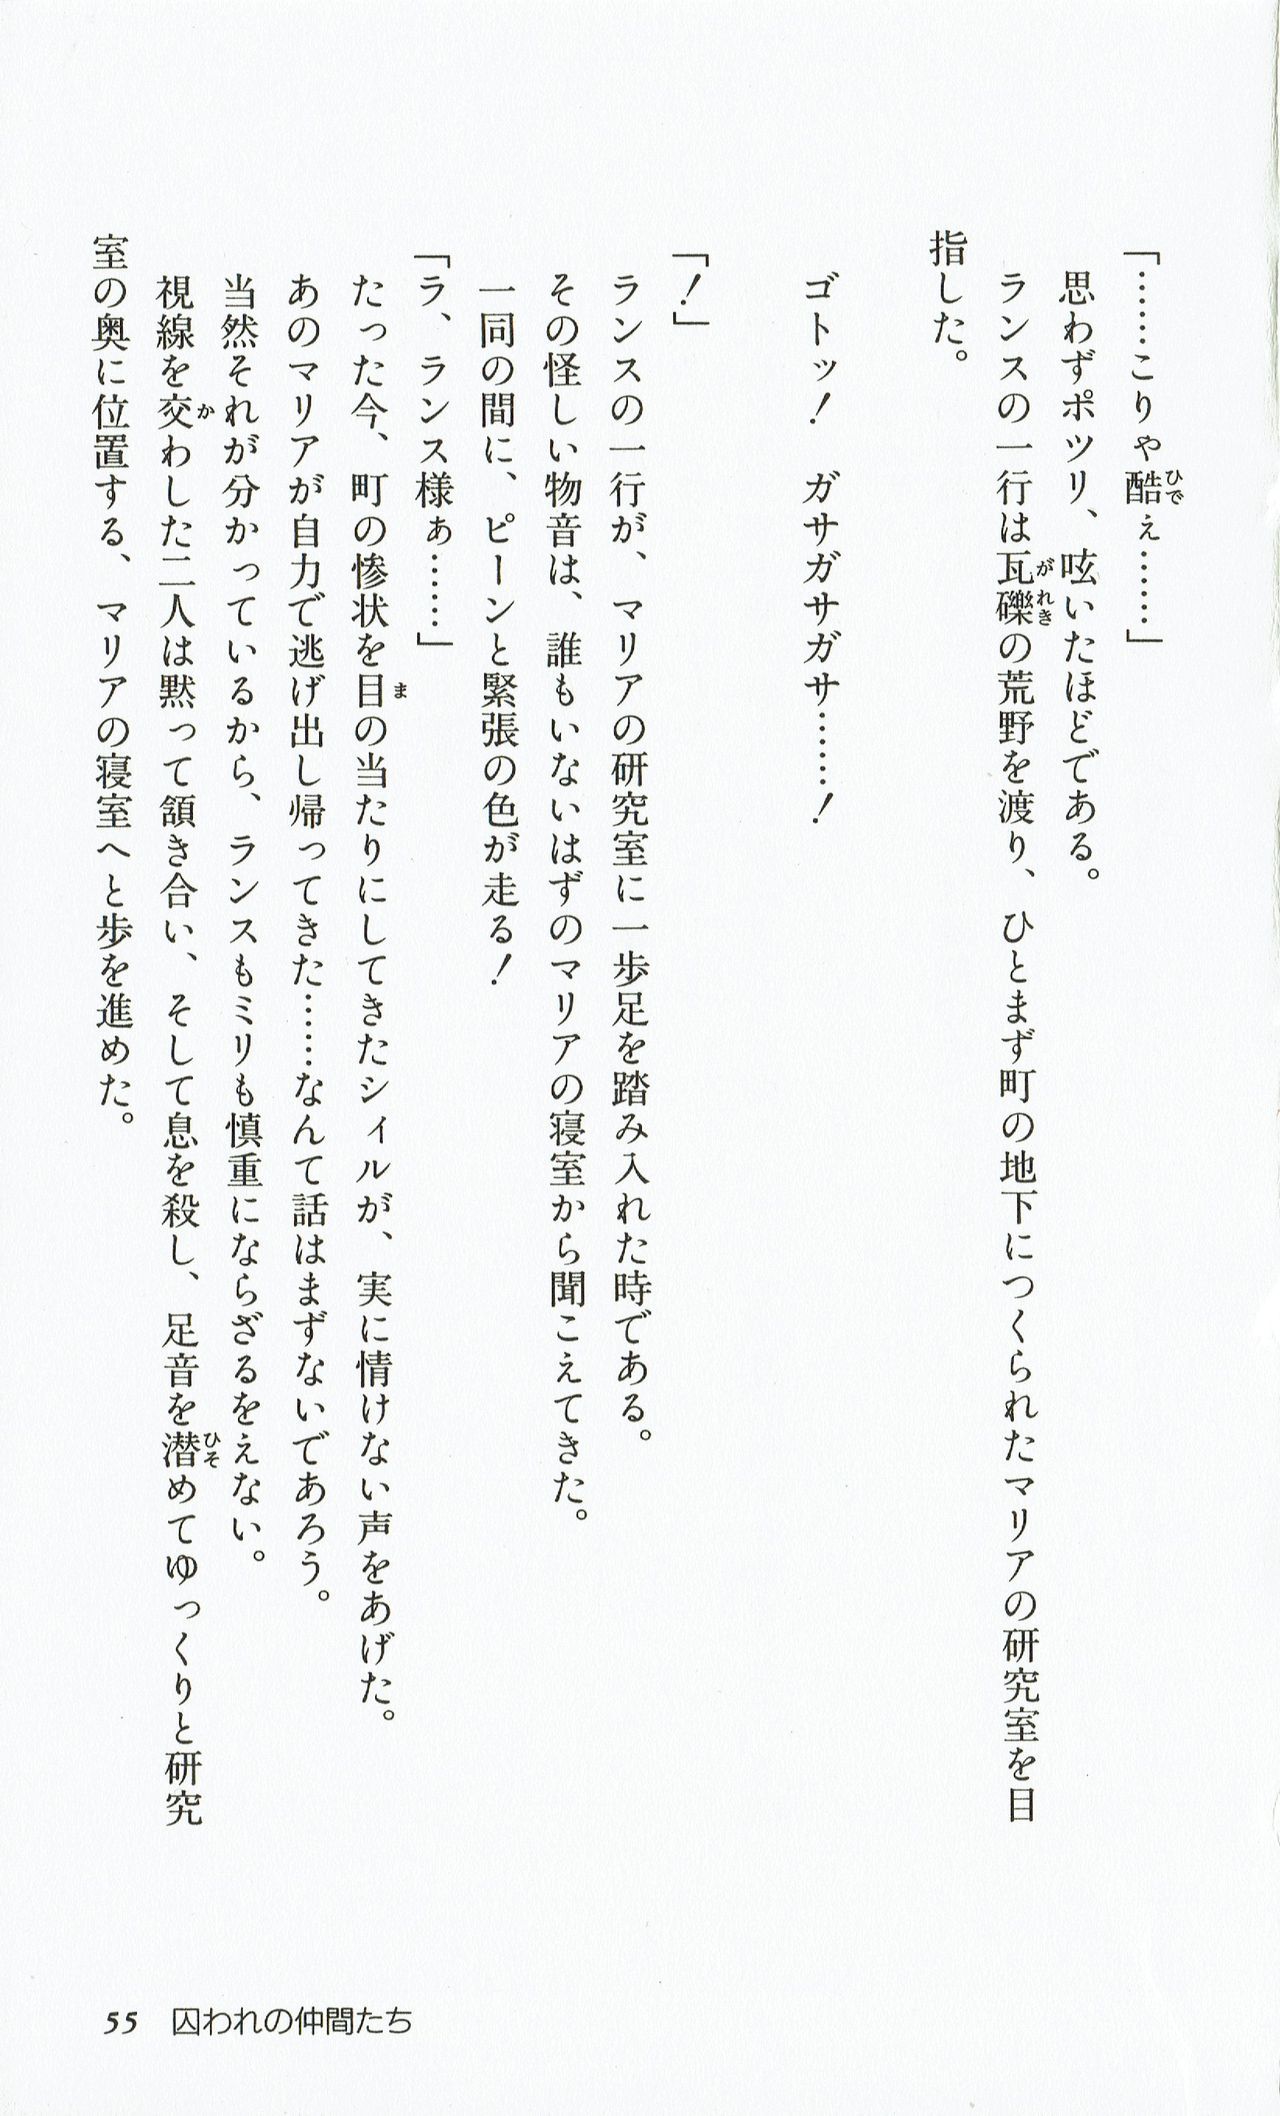 「……こりゃ酷ぇ……」
思わずポツリ、呟いたほどである。
ランスの一行は瓦礫の荒野を渡り、ひとまず町の地下につくられたマリアの研究室を目
指した。
ゴトッ！　ガサガサガサ……！
「！」
ランスの一行が、マリアの研究室に一歩足を踏み入れた時である。
その怪しい物音は、誰もいないはずのマリアの寝室から聞こえてきた。
一同の間に、ピーンと緊張の色が走る！
「ラ、ランス様ぁ……」
たった今、町の惨状を目の当たりにしてきたシィルが、実に情けない声をあげた。
あのマリアが自力で逃げ出し帰ってきた……なんて話はまずないであろう。
当然それが分かっているから、ランスもミリも慎重にならざるをえない。
視線を交わした二人は黙って頷き合い、そして息を殺し、足音を潜めてゆっくりと研究
室の奥に位置する、マリアの寝室へと歩を進めた。
55　囚われの仲間たち